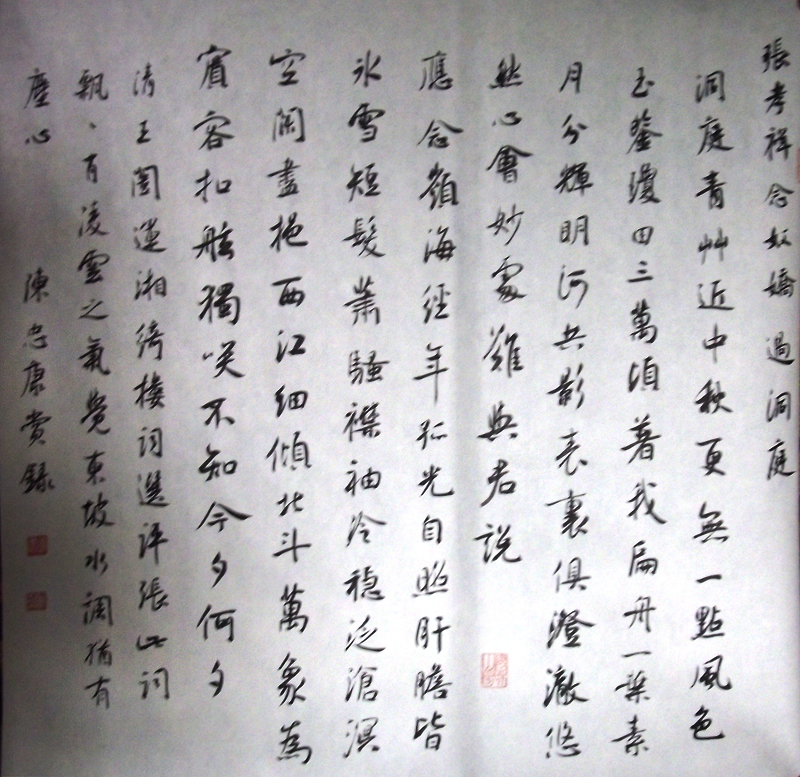 張孝祥念奴嬌過洞庭
洞庭青艸近中秋更無一點風色
玉鑒瓊田三萬頃著我扁舟一葉素
月分輝明河共影表裏俱澄澈悠
然心會妙處難與君說
應念嶺海經年孤光自照肝膽皆
氷雪短髮蕭騷襟袖冷穩泛滄溟
空闊盡挹西江細傾北斗萬象為
賓客扣舷獨咲不知今夕何夕
清王闓運湘綺樓詞選評張此詞
飄丶有凌雲之氣覺東坡水調猶有
塵心 陳忠康賞錄